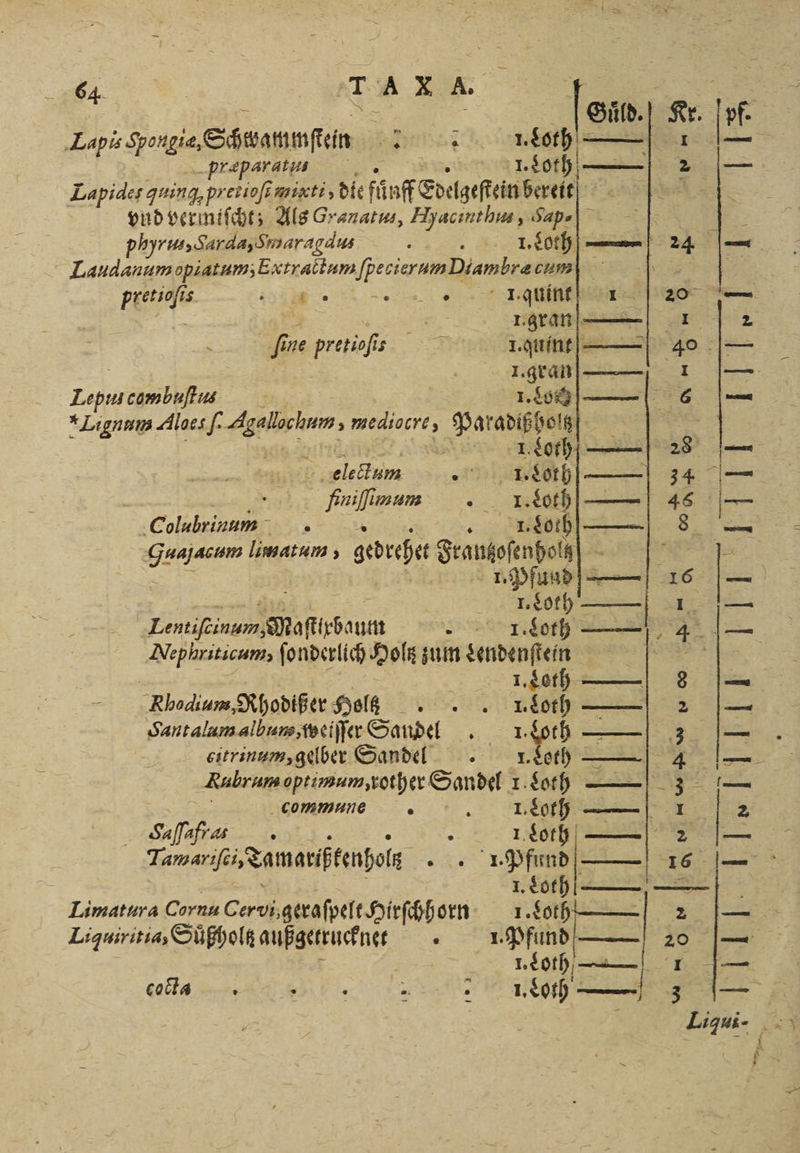 64 TAXA.
Gůld. Kr. pf.
Lapis Spongiæ, Schwammstein : : 1. Loth —— 1 —
præparatus . . 1. Loth —— 2 —
Lapides quinq; pretiosi mixti, die fünff Edelgestein bereit
und vermischt; Als Granatus, Hyacinthus, Sap-
phyrus, Sarda, Smaragdus . . 1. Loth —— 24 —
Laudanum opiatum; Extractum specierum Diambræ cum
pretiosis . . . . 1. quint 1 20 —
1. gran —— 1 2
sine pretiosis 1. quint —— 40 —
1. gran —— 1 —
Lepus combustus 1. Loth —— 6 —
*Lignum Aloes s. Agallochum, mediocre, Paradißholtz
1. Loth —— 28 —
electum . 1. Loth —— 34 —
finissimum . 1. Loth —— 46 —
Colubrinum . . . . 1. Loth —— 8 —
Guajacum limatum, gedrehet Frantzosenholtz
1. Pfund —— 16 —
1. Loth —— 1 —
Lentiscinum, Mastixbaum . 1. Loth —— 4 —
Nephriticum, sonderlich Holtz zum Lendenstein
1. Loth —— 8 —
Rhodium, Rhodißer Holtz . . . 1. Loth —— 2 —
Santalum album, weisser Sandel . 1. Loth —— 3 —
citrinum, gelber Sandel . 1. Loth —— 4 —
Rubrum optimum, rother Sandel 1 Loth —— 3 —
commune . . 1. Loth —— 1 2
Sassafras . . . . 1 Loth —— 2 —
Tamarisci, Tamarißkenholtz . . 1. Pfund —— 16 —
1. Loth —— ——
Limatura Cornu Cervi, geraspelt Hirschhorn 1. Loth —— 2 —
Liquiritia, Süßholtz außgetrucknet . 1. Pfund —— 20 —
1. Loth —— 1 —
cocta . . . . : 1. Loth —— 3 —
Liqui-